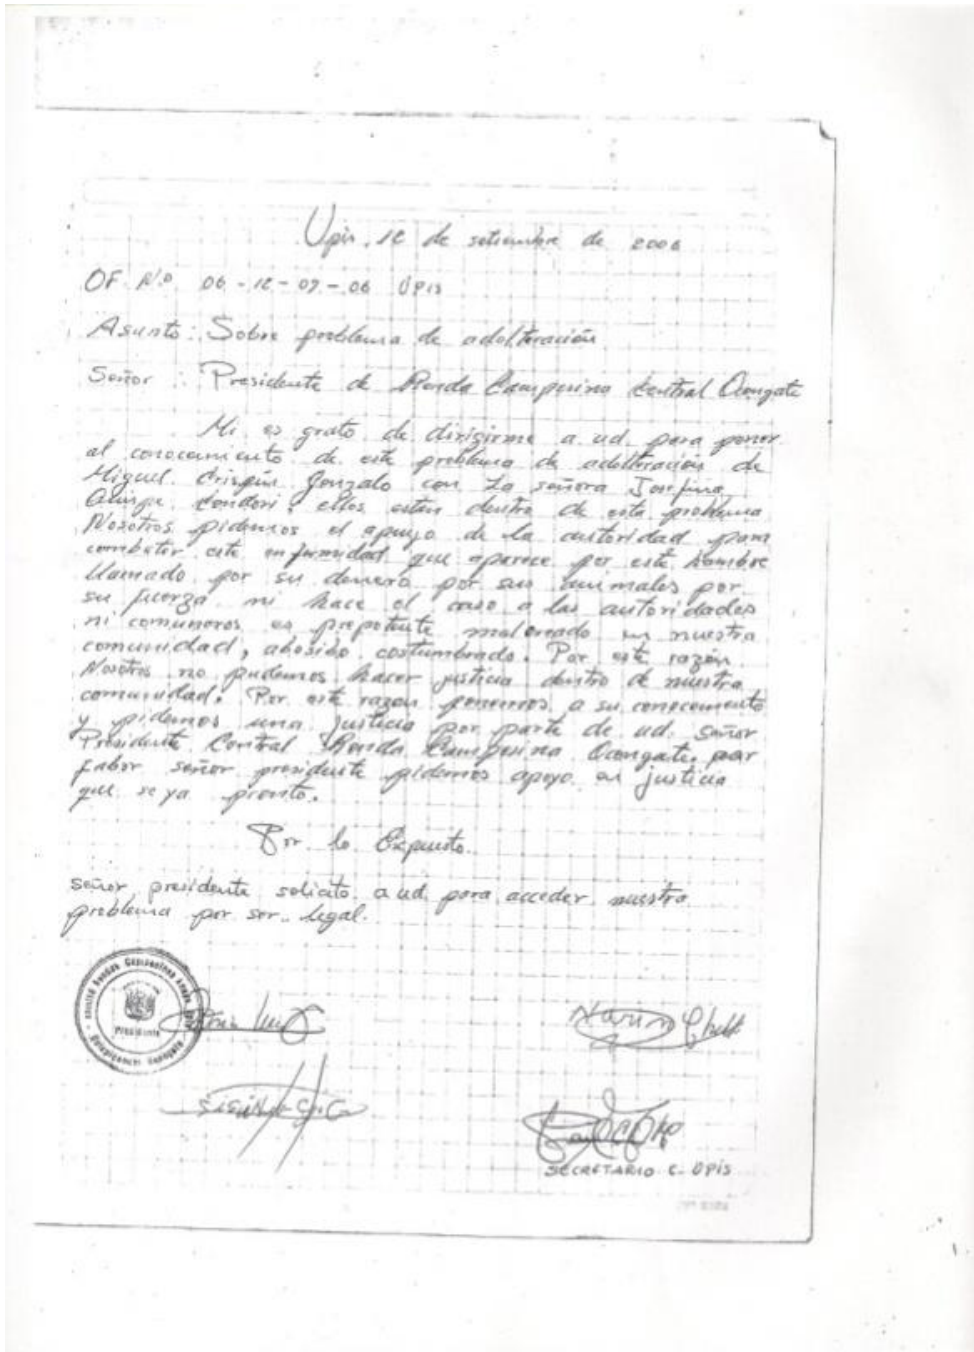 Upis, 12 de setiembre de 2006
OF. N.o 06-12-09-06 UPIS
Asunto: Sobre problema de adolteración
Señor : Presidente de Ronda Campesina Central Ocongate
Mi es grato de dirigirme a ud. para poner
al conocimiento de este problema de adolteración de
Miguel Crispín Gonzalo con La señora Josefina
Quispe Condori, ellos están dentro de este problema
Nosotros pidemos el apuyo de la autoridad para
combatir este enfermidad que aparece por este hombre
llamado por su denero por sus animales por
su fuerza ni hace el caso a las autoridades
ni comuneros es prepotente malcreado en nuestra
comunidad, abosibo costumbrado. Por este razón
Nosotros no pudemos hacer justicia dentro de nuestra
comunidad. Por este razon ponemos a su conocemento
y pidemos una justicia por parte de ud. señor
Presidente Central Ronda Campesina Ocongate, por
fabor señor presidente pidemos apoyo en justicia
que se ya pronto.
Por lo Expuesto.
señor presidente solicito a ud. para acceder nuestra
problema por ser legal.
Presidente
SECRETARIO C. UPIS